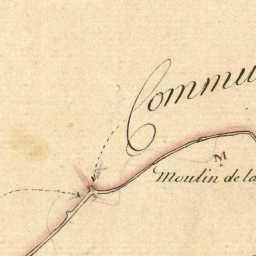 Commu
M
Moulin de la